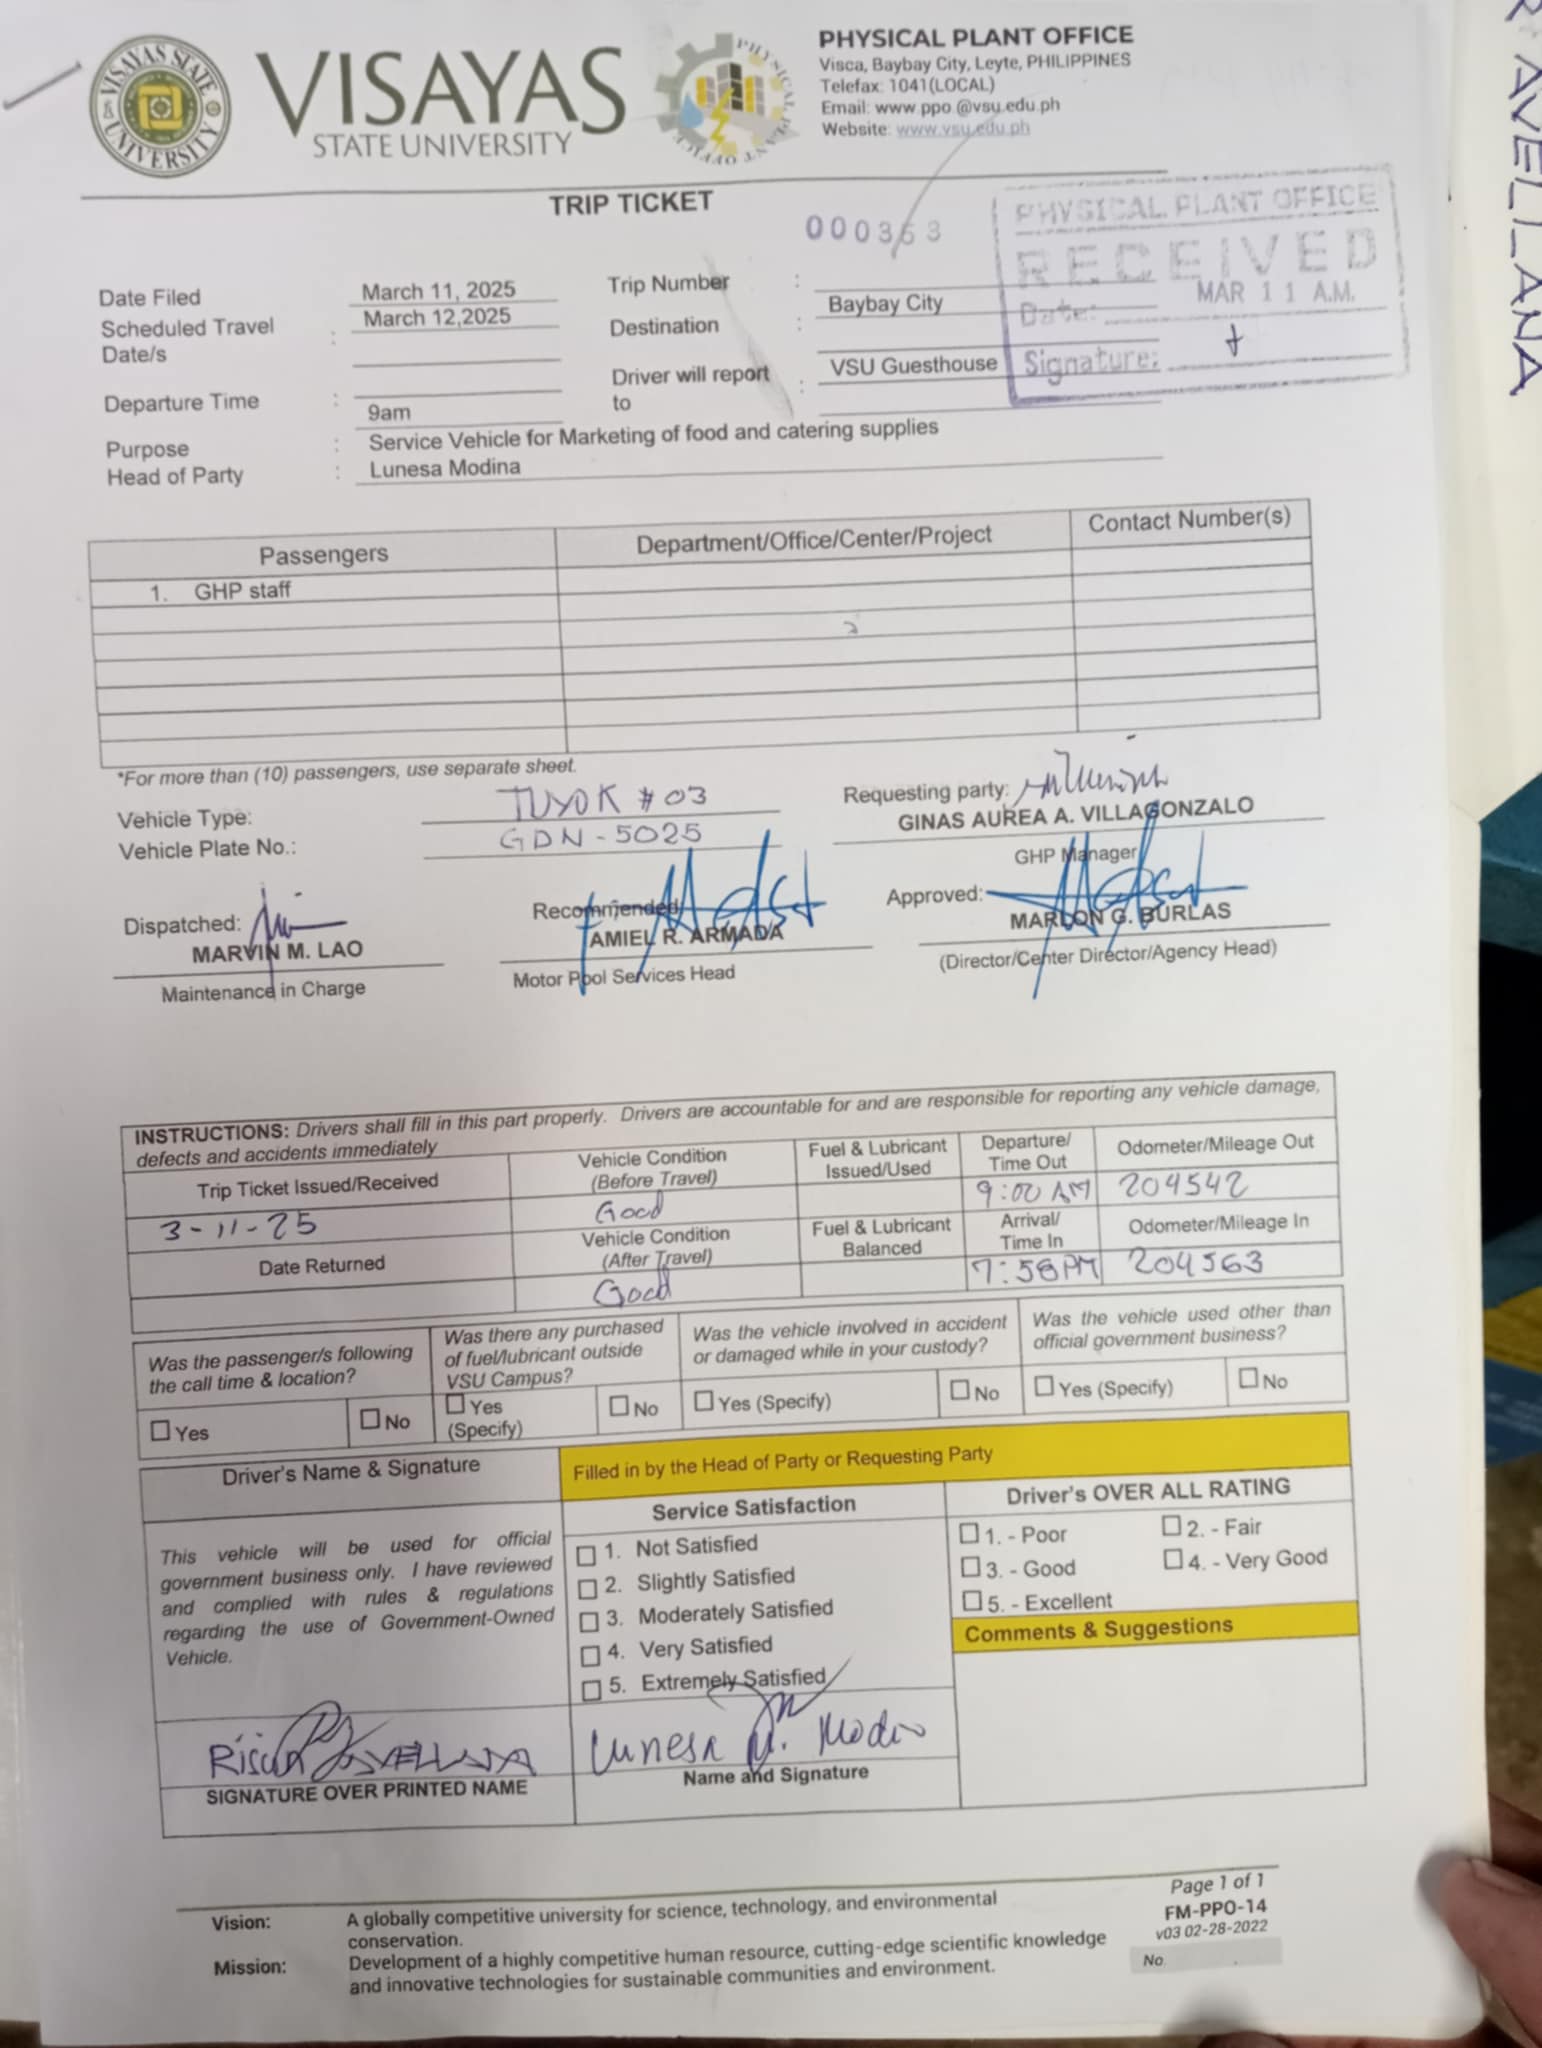 VISAYAS STATE UNIVERSITY
VISAYAS
STATE UNIVERSITY
PHYSICAL PLANT OFFICE
PHYSICAL PLANT OFFICE
Visca, Baybay City, Leyte, PHILIPPINES
Telefax: 1041(LOCAL)
Email: www.ppo @vsu.edu.ph
Website: www.vsu.edu.ph
TRIP TICKET
000363
PHYSICAL PLANT OFFICE
RECEIVED
Date: MAR 11 A.M.
Signature:
Date Filed March 11, 2025
Scheduled Travel Date/s : March 12,2025
Departure Time : 9am
Trip Number :
Destination : Baybay City
Driver will report to : VSU Guesthouse
Purpose : Service Vehicle for Marketing of food and catering supplies
Head of Party : Lunesa Modina
Passengers Department/Office/Center/Project Contact Number(s)
1. GHP staff
*For more than (10) passengers, use separate sheet.
Vehicle Type: TUYOK # 03
Vehicle Plate No.: GDN - 5025
Requesting party:
GINAS AUREA A. VILLAGONZALO
GHP Manager
Dispatched:
MARVIN M. LAO
Maintenance in Charge
Recommended
AMIEL R. ARMADA
Motor Pool Services Head
Approved:
MARLON G. BURLAS
(Director/Center Director/Agency Head)
INSTRUCTIONS: Drivers shall fill in this part properly. Drivers are accountable for and are responsible for reporting any vehicle damage,
defects and accidents immediately
Trip Ticket Issued/Received
3-11-25
Vehicle Condition
(Before Travel)
Good
Fuel & Lubricant
Issued/Used
Departure/
Time Out
9:00 AM
Odometer/Mileage Out
204542
Date Returned
Vehicle Condition
(After Travel)
Good
Fuel & Lubricant
Balanced
Arrival/
Time In
7:58 PM
Odometer/Mileage In
204563
Was the passenger/s following
the call time & location?
Yes No
Was there any purchased
of fuel/lubricant outside
VSU Campus?
Yes
(Specify)
No
Was the vehicle involved in accident
or damaged while in your custody?
Yes (Specify) No
Was the vehicle used other than
official government business?
Yes (Specify) No
Driver's Name & Signature
Filled in by the Head of Party or Requesting Party
This vehicle will be used for official
government business only. I have reviewed
and complied with rules & regulations
regarding the use of Government-Owned
Vehicle.
SIGNATURE OVER PRINTED NAME
Service Satisfaction
1. Not Satisfied
2. Slightly Satisfied
3. Moderately Satisfied
4. Very Satisfied
5. Extremely Satisfied
Lunesa
Name and Signature
Driver's OVER ALL RATING
1. - Poor 2. - Fair
3. - Good 4. - Very Good
5. - Excellent
Comments & Suggestions
Vision: A globally competitive university for science, technology, and environmental
conservation.
Mission: Development of a highly competitive human resource, cutting-edge scientific knowledge
and innovative technologies for sustainable communities and environment.
Page 1 of 1
FM-PPO-14
v03 02-28-2022
No.
AVELLANA